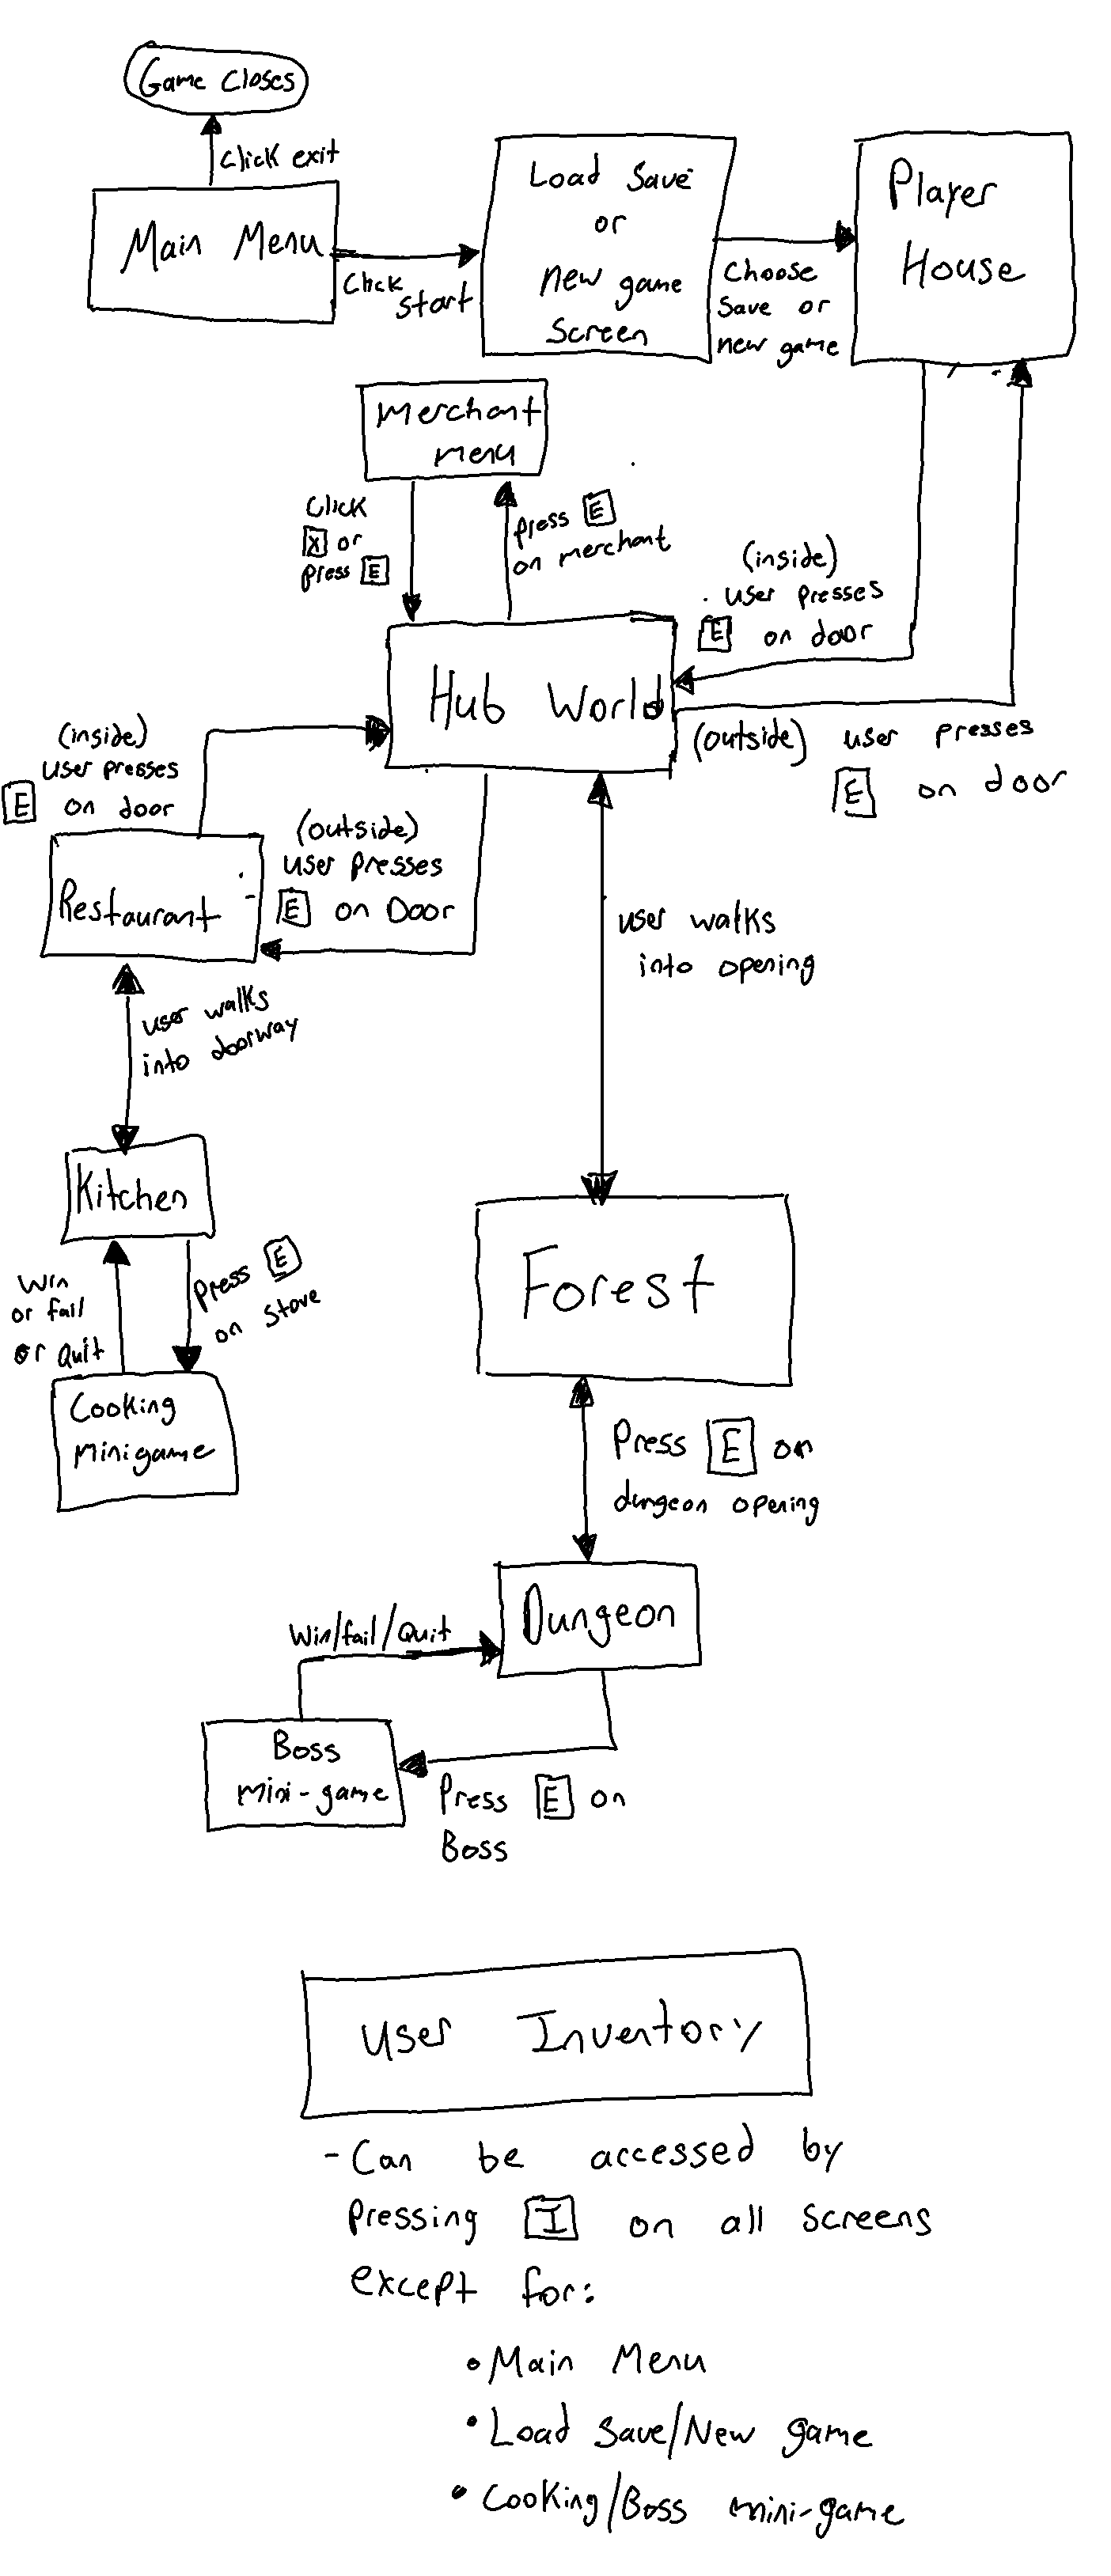 Game Closes
Click exit
Main Menu
Click
start
Load Save
or
new game
Screen
Choose
Save or
new game
Player
House
Merchant
menu
Click
X or
press E
press E
on merchant
(inside)
user presses
E on door
Hub World
(outside) user presses
E on door
(inside)
user presses
E on door
(outside)
user presses
E on Door
Restaurant
user walks
into opening
user walks
into doorway
Kitchen
Win
or fail
or Quit
Press E
on stove
Cooking
minigame
Forest
Press E on
dungeon opening
Dungeon
Win/fail/Quit
Boss
mini-game
Press E on
Boss
User Inventory
- Can be accessed by
pressing I on all screens
except for:
• Main Menu
• Load Save/New game
• Cooking/Boss mini-game